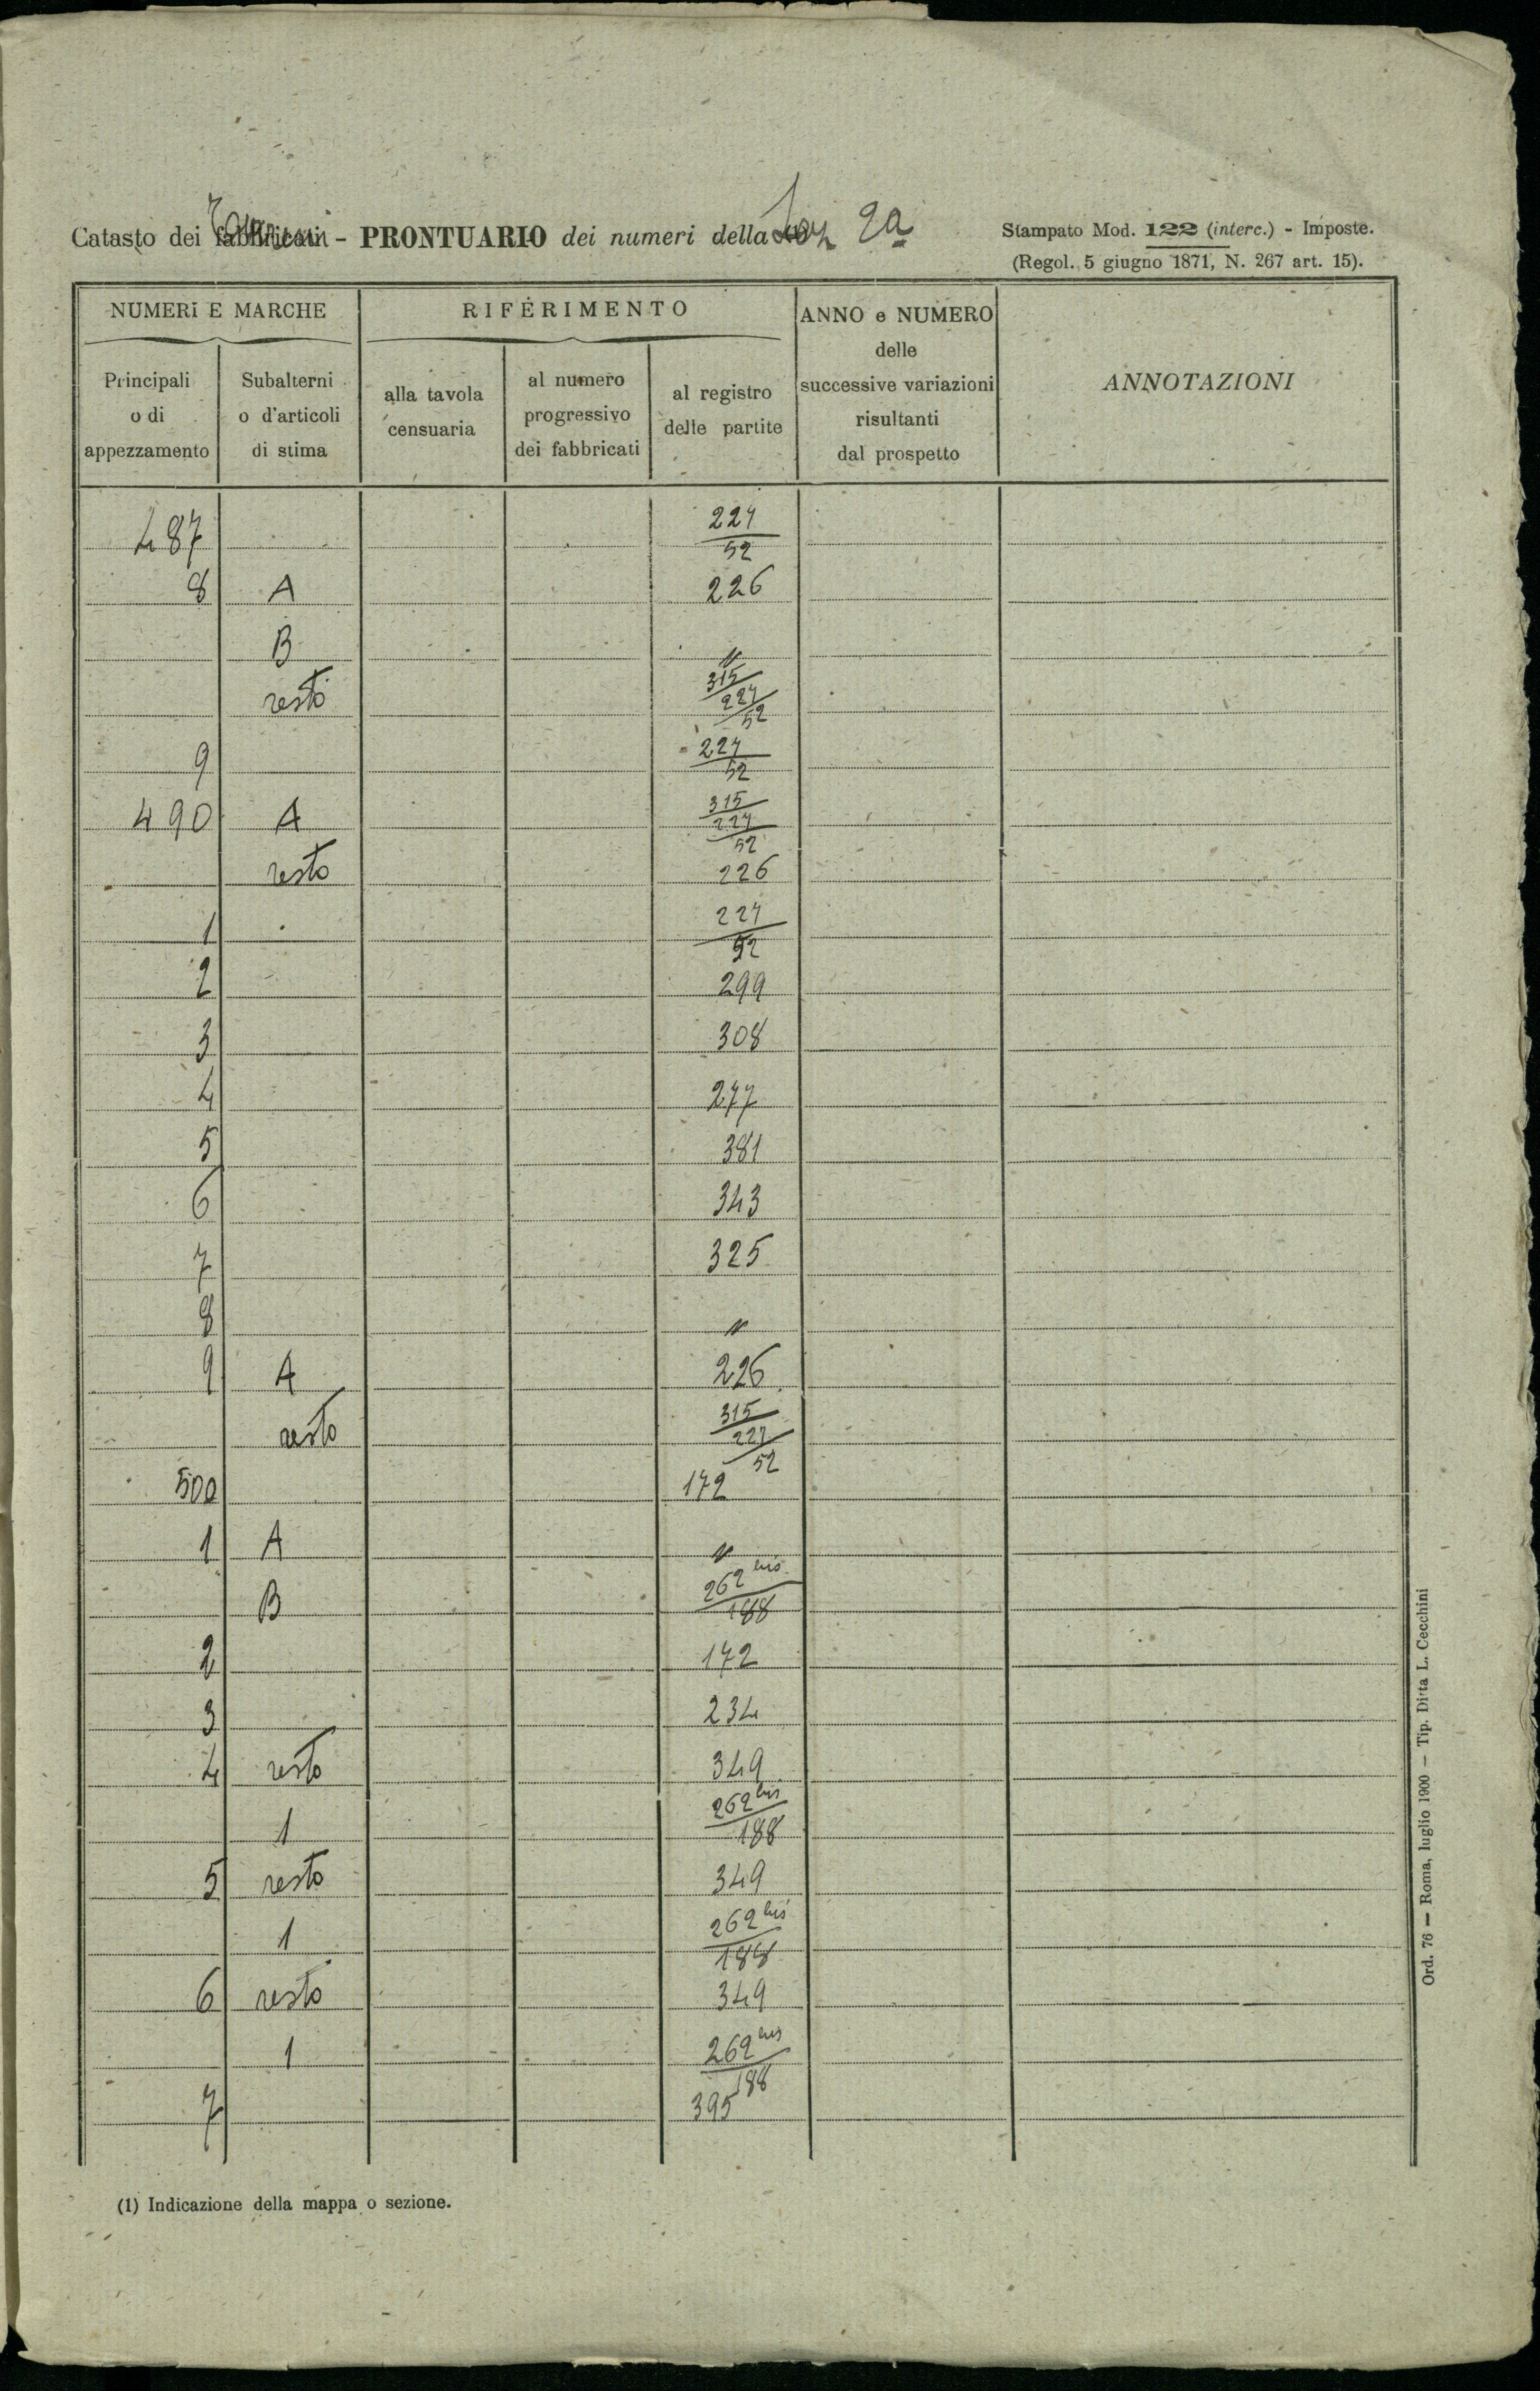 Catasto dei fabbricati Terreni - PRONTUARIO dei numeri della Sez 2a
Stampato Mod. 122 (interc.) - Imposte.
(Regol. 5 giugno 1871, N. 267 art. 15).
NUMERI E MARCHE
RIFERIMENTO
ANNO e NUMERO delle successive variazioni risultanti dal prospetto
ANNOTAZIONI
Principali o di appezzamento
Subalterni o d'articoli di stima
alla tavola censuaria
al numero progressivo dei fabbricati
al registro delle partite
487 227/52
8 A 226
B "
resto 315/227/52
9 227/52
490 A 315/227/52
resto 226
1 227/52
2 299
3 308
4 277
5 381
6 343
7 325
8 "
9 A 226
resto 315/227/52
500 172
1 A "
B 262 bis/188
2 172
3 234
4 resto 349
1 262 bis/188
5 resto 349
1 262 bis/188
6 resto 349
1 262 bis/188
7 395
(1) Indicazione della mappa o sezione.
Ord. 76 — Roma, luglio 1900 — Tip. Ditta L. Cecchini